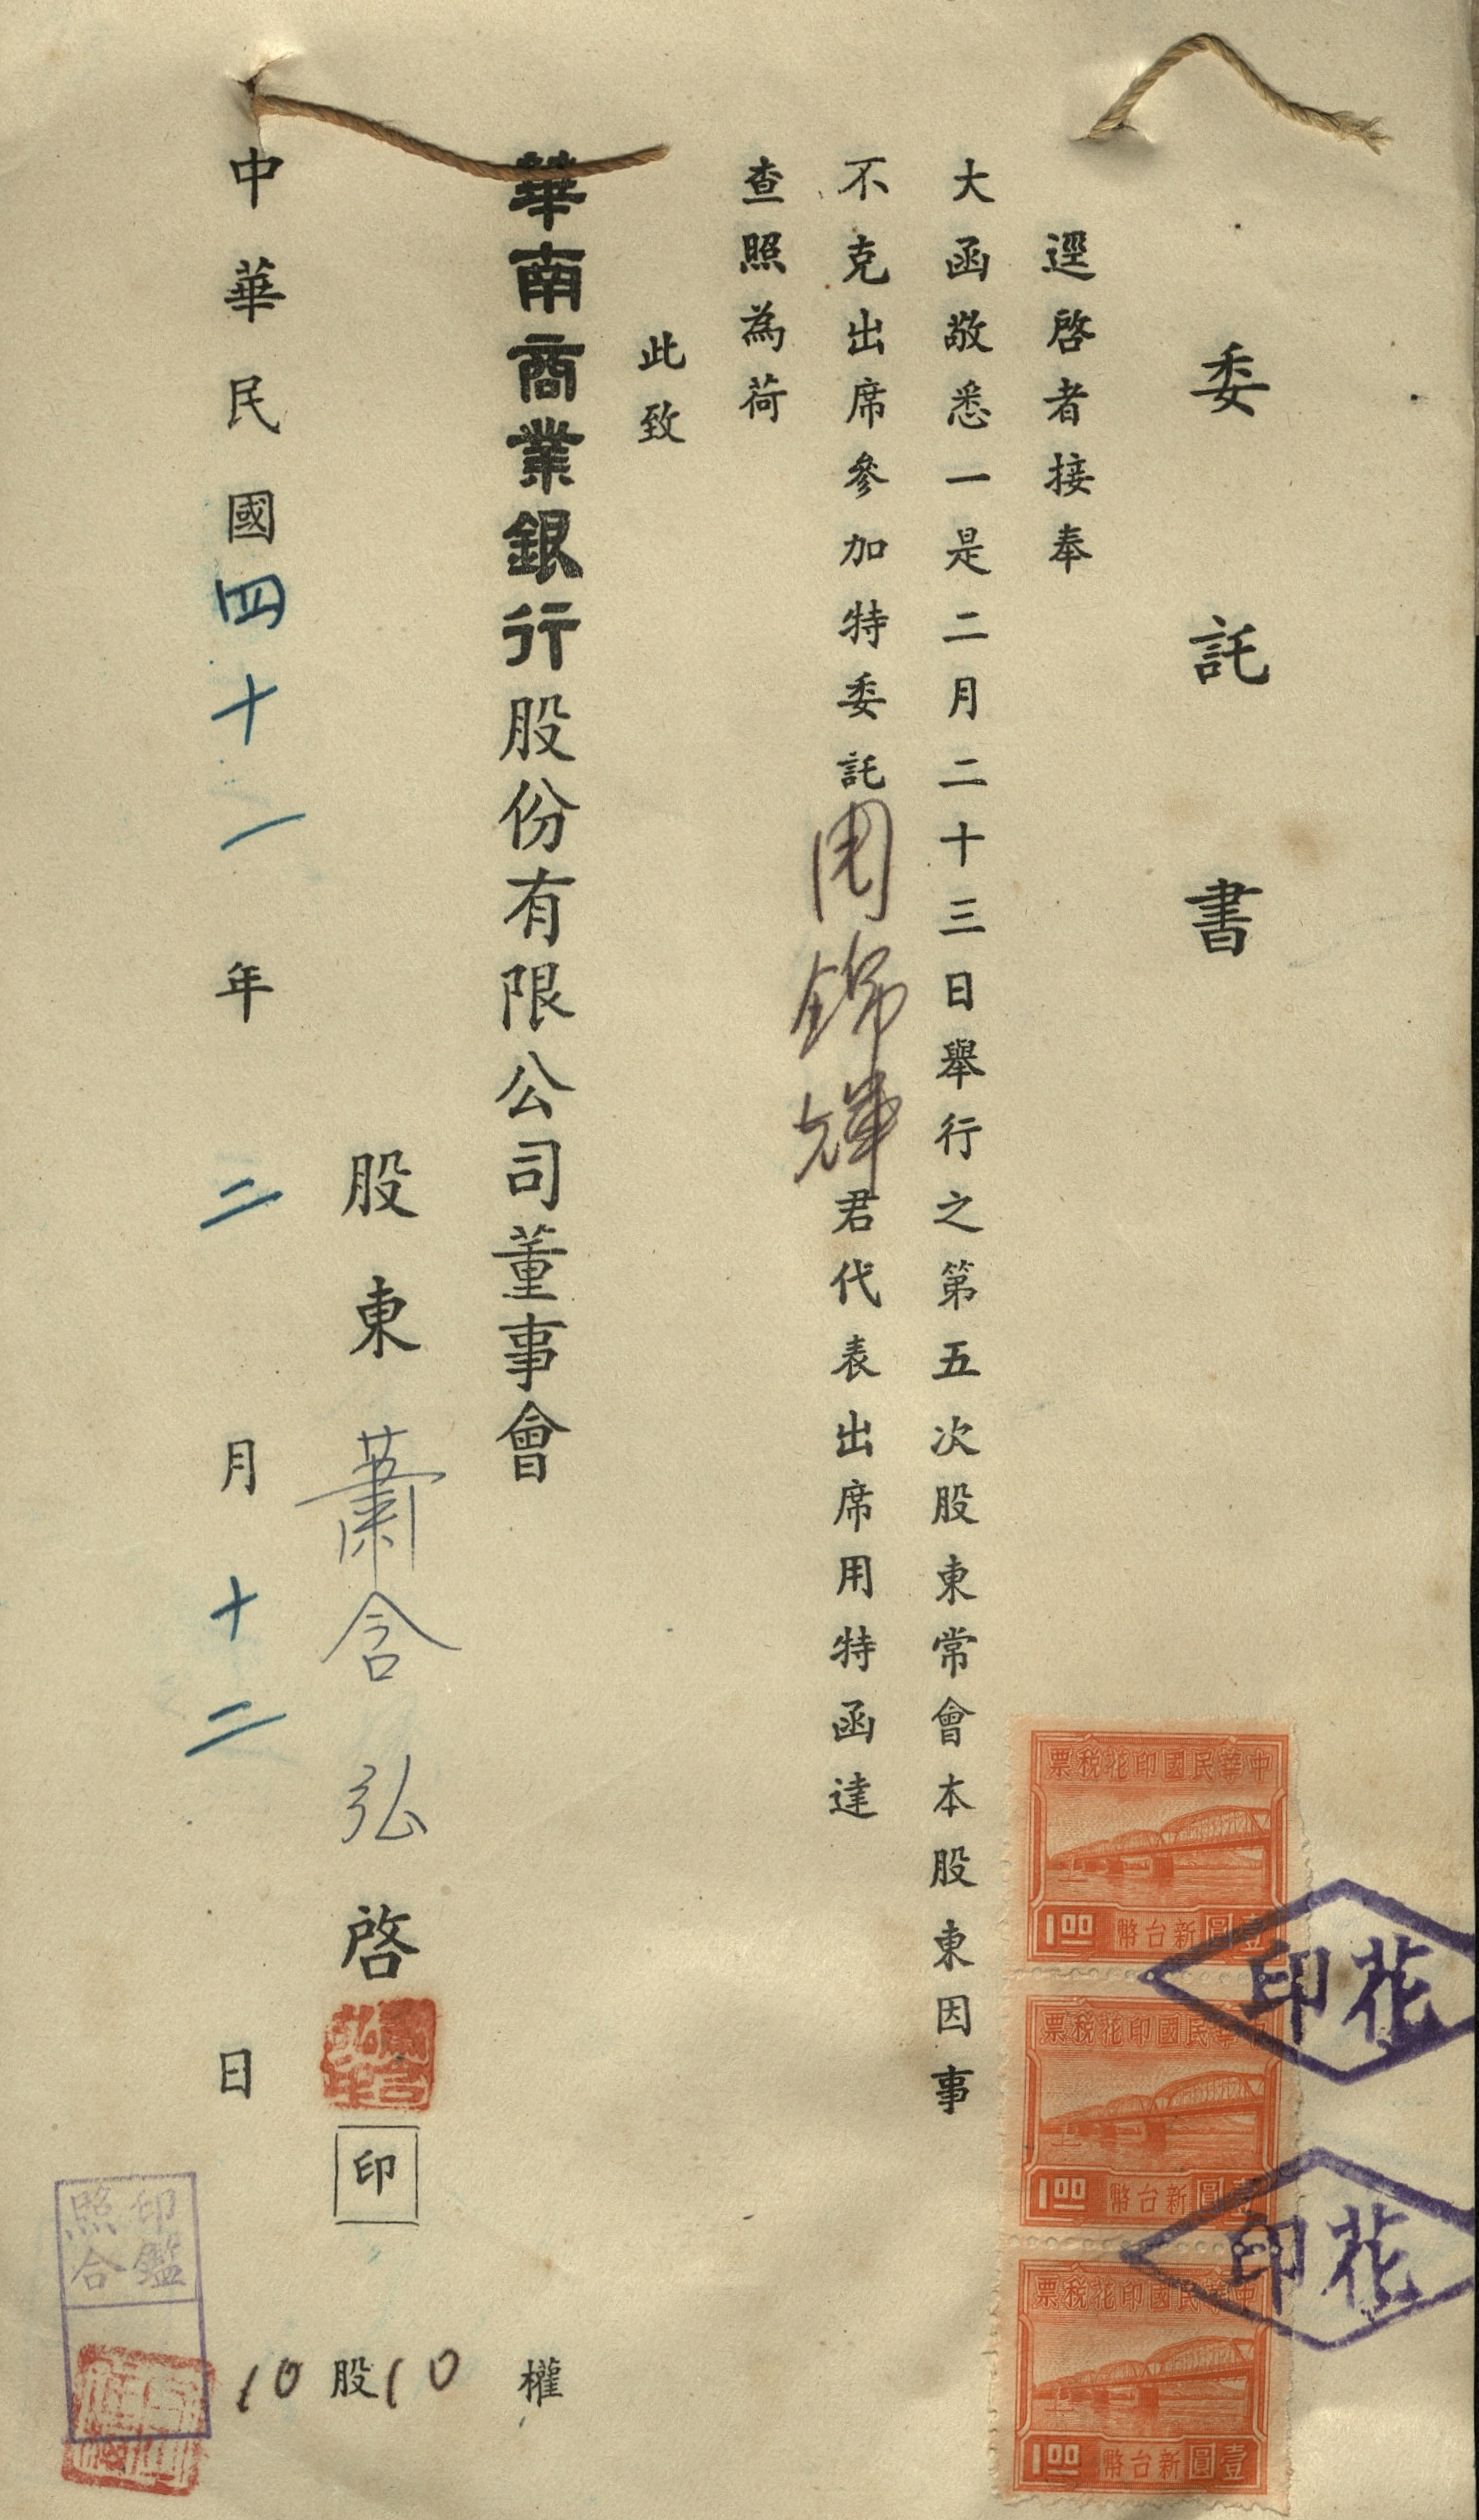 委託書
逕啓者接奉
大函敬悉一是二月二十三日舉行之第五次股東常會本股東因事
不克出席參加特委託周錦輝君代表出席用特函達
查照為荷
此致
華南商業銀行股份有限公司董事會
股東蕭含弘啓
印
中華民國四十一年二月十二日
10股10權
印鑑
照合
票稅花印國民華中
1.00 幣台新圓壹
票稅花印國民華中
1.00 幣台新圓壹
票稅花印國民華中
1.00 幣台新圓壹
印花
印花